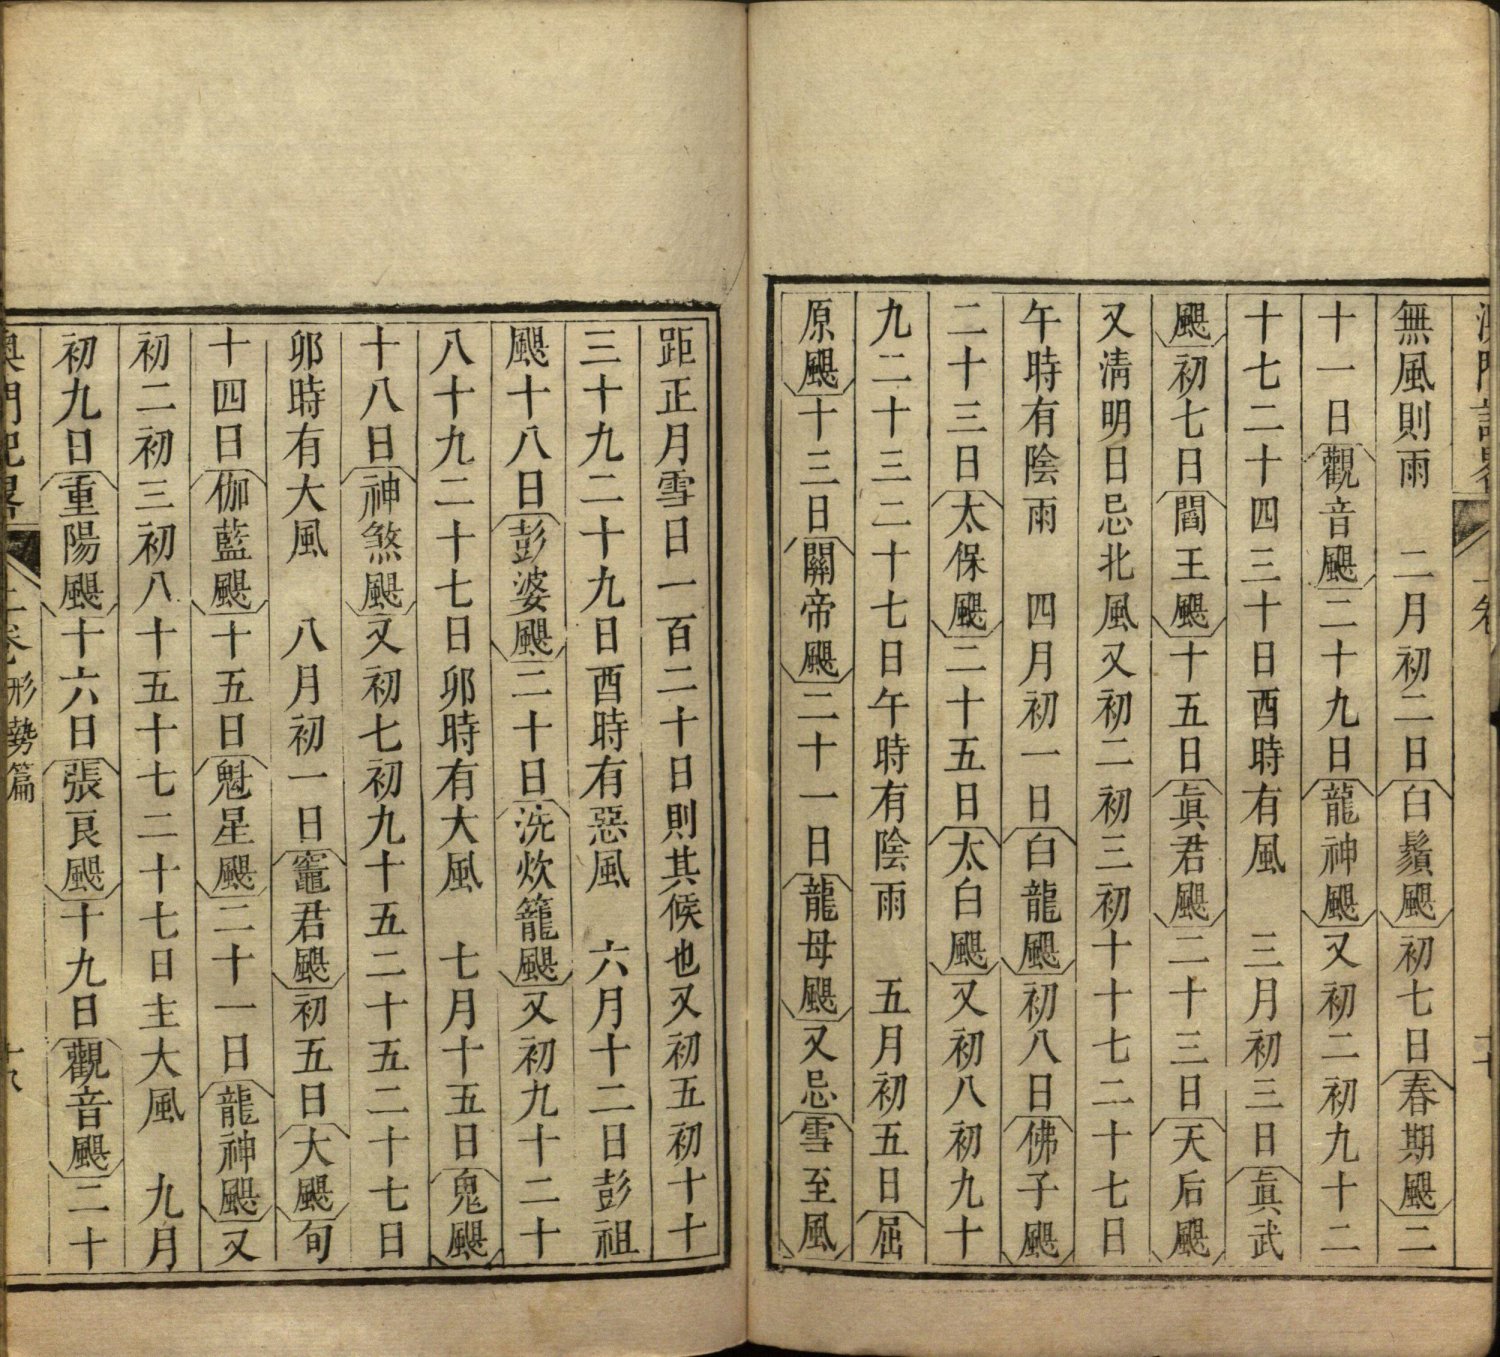 無風則雨　二月初二日白鬚颶初七日春期颶二
十一日觀音颶二十九日龍神颶又初二初九十二
十七二十四三十日酉時有風　三月初三日眞武
颶初七日閻王颶十五日眞君颶二十三日天后颶
又清明日忌北風又初二初三初十十七二十七日
午時有陰雨　四月初一日白龍颶初八日佛子颶
二十三日太保颶二十五日太白颶又初八初九十
九二十三二十七日午時有陰雨　五月初五日屈
原颶十三日關帝颶二十一日龍母颶又忌雪至風
距正月雪日一百二十日則其候也又初五初十十
三十九二十九日酉時有惡風　六月十二日彭祖
颶十八日彭婆颶二十日洗炊籠颶又初九十二十
八十九二十七日卯時有大風　七月十五日鬼颶
十八日神煞颶又初七初九十五二十五二十七日
卯時有大風　八月初一日竈君颶初五日大颶旬
十四日伽藍颶十五日魁星颶二十一日龍神颶又
初二初三初八十五十七二十七日主大風　九月
初九日重陽颶十六日張良颶十九日觀音颶二十
形勢篇